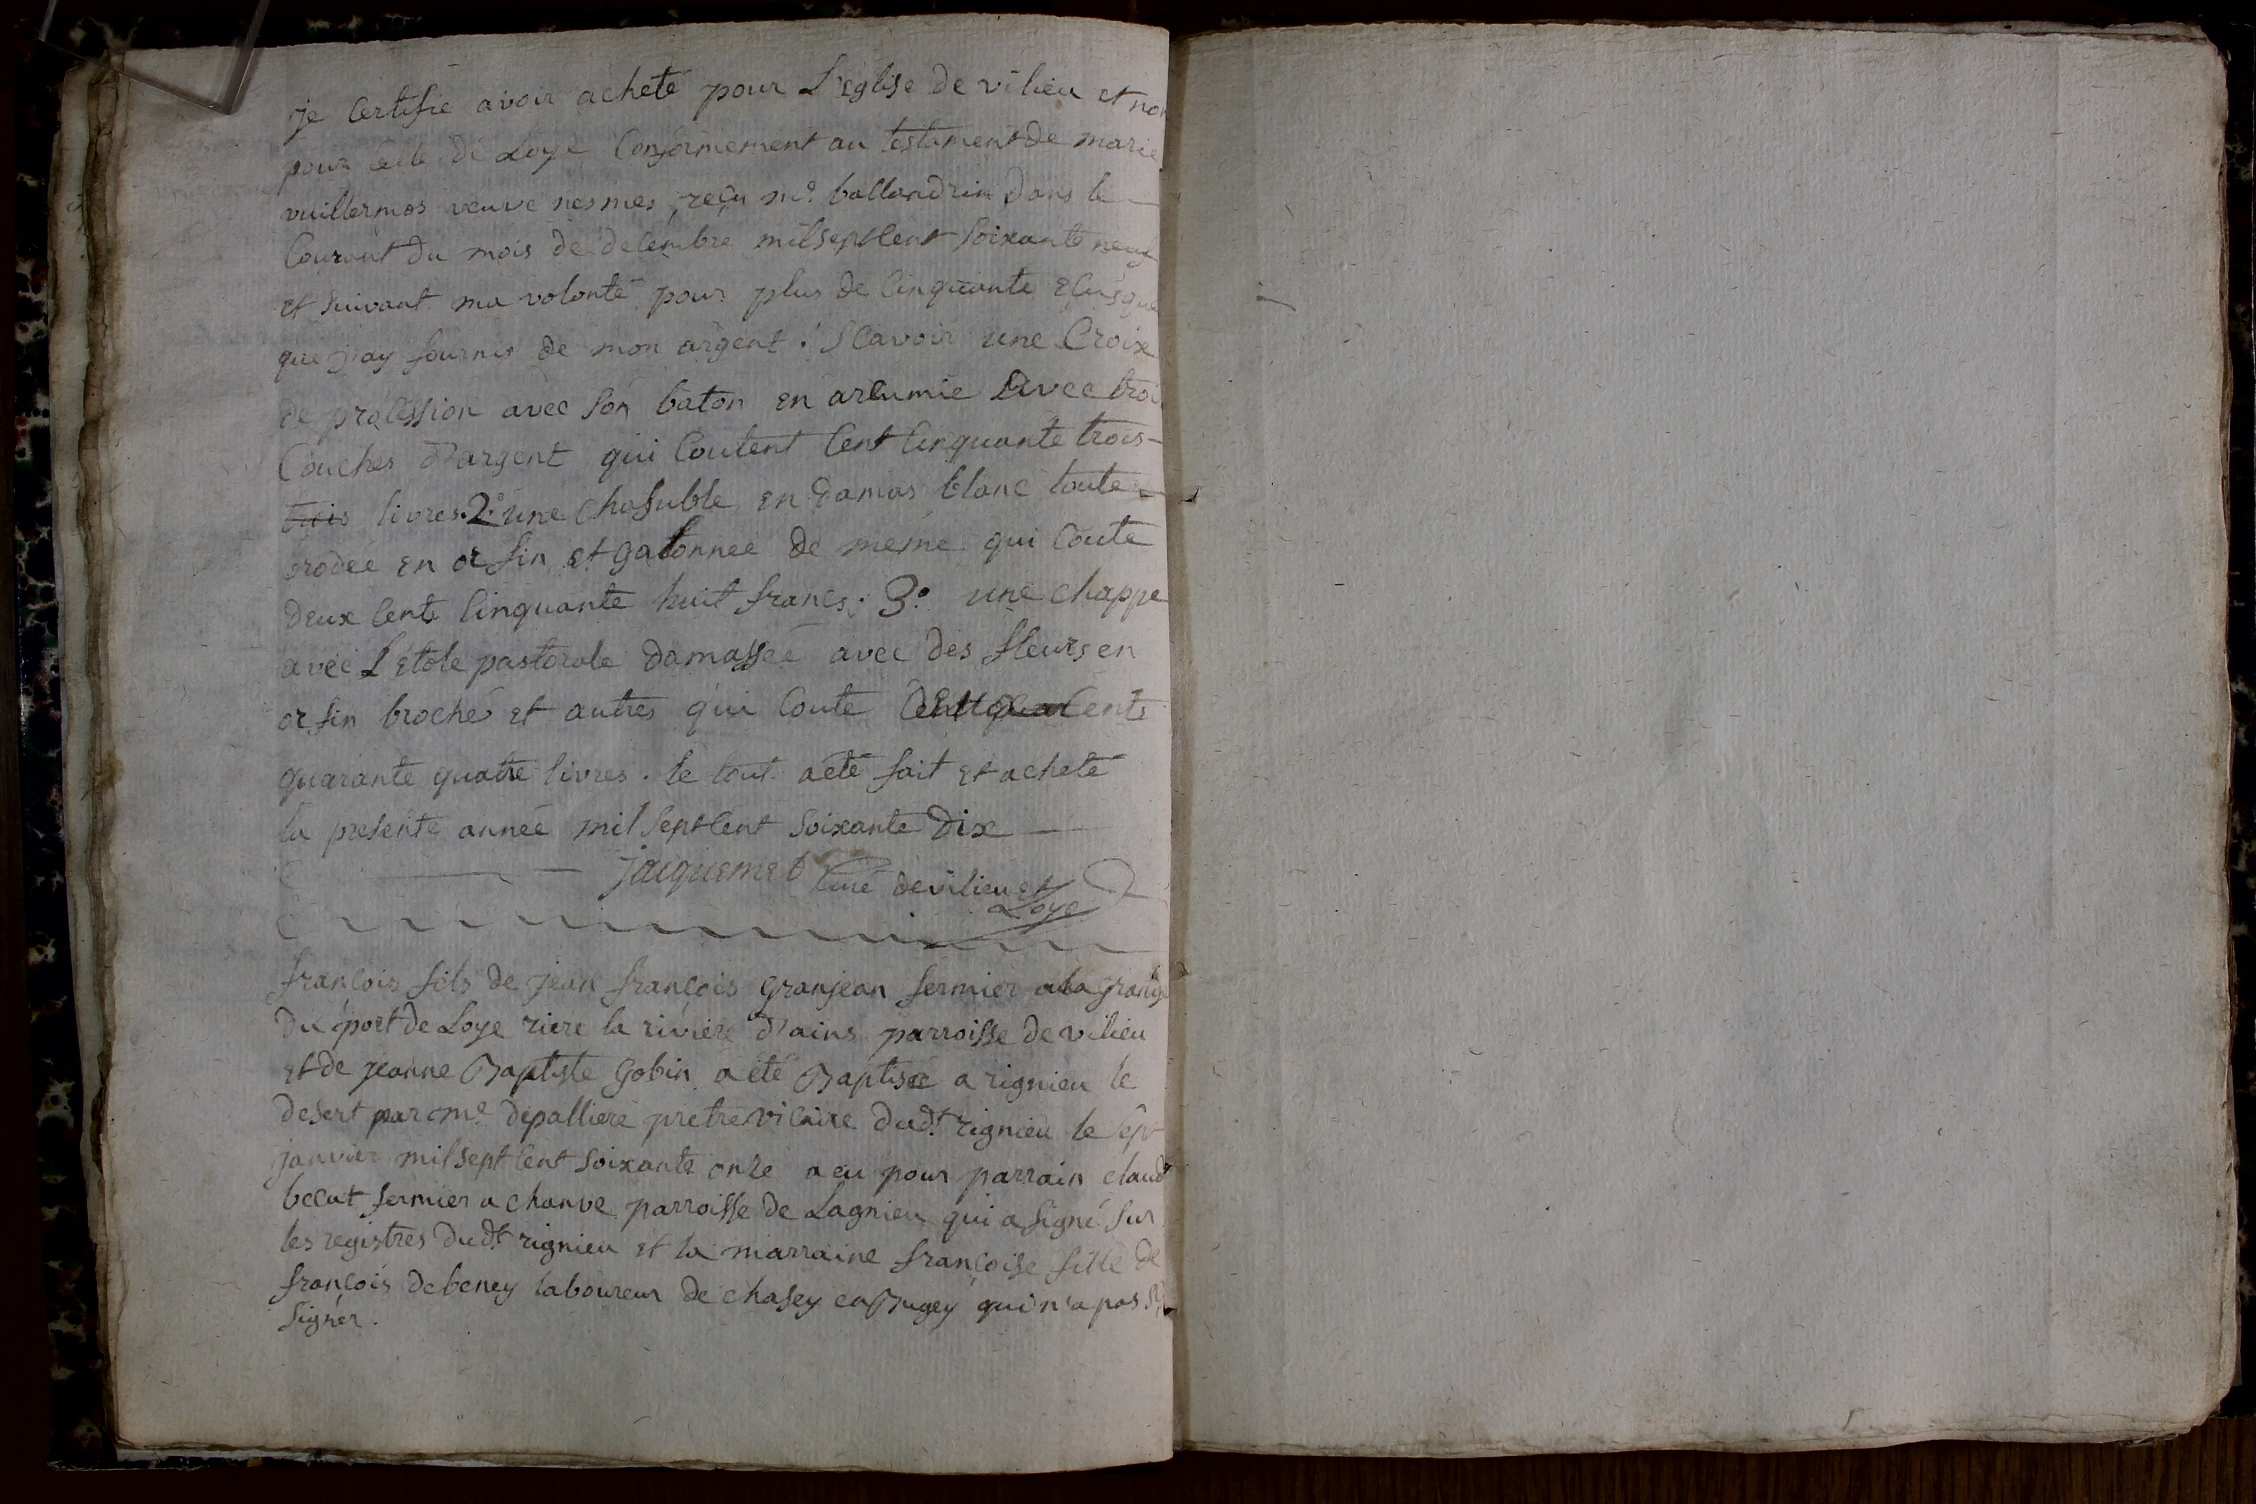 je Certifie avoir acheté pour L'Eglise de vilieu et non
pour celle de Loye Conformement au testament de marie
vuillermos veuve nesmes, reçu me. ballandrin Dans le
Courant du mois de decembre mil sept Cent soixante neuf
et suivant ma volonté pour plus de Cinquante
que j'ay fournis de mon argent. Scavoir une Croix
de procession avec son baton en arcumie avec trois
Couches d'argent qui Coutent Cent Cinquante trois
trois livres. 2° une chasuble en Damas blanc toute
brodée en or fin et galonnée de meme qui Coute
Deux Cents Cinquante huit francs. 3° une chappe
avec L'Etole pastorale damassée avec des fleurs en
or fin broches et autres qui Coute Cents
quarante quatre livres. le tout a été fait et acheté
la presente année mil sept Cent soixante Dix
jacquemet Curé de vilieu et
Loye
françois fils de jean françois granjean fermier a la grange
Du port de Loye riere la riviere d'ains parroisse de vilieu
et de jeanne Baptiste gobin a été Baptisé a rignieu le
desert par me. depalliere pretre vicaire dudt. rignieu le sept
janvier mil sept Cent soixante onze a eu pour parrain claude
becat fermier a chanve parroisse de Lagnieu qui a signé sur
les registres dudt. rignieu et la marraine françoise fille de
françois debeney laboureur de chasey en Bugey qui n'a pas sû
signer.